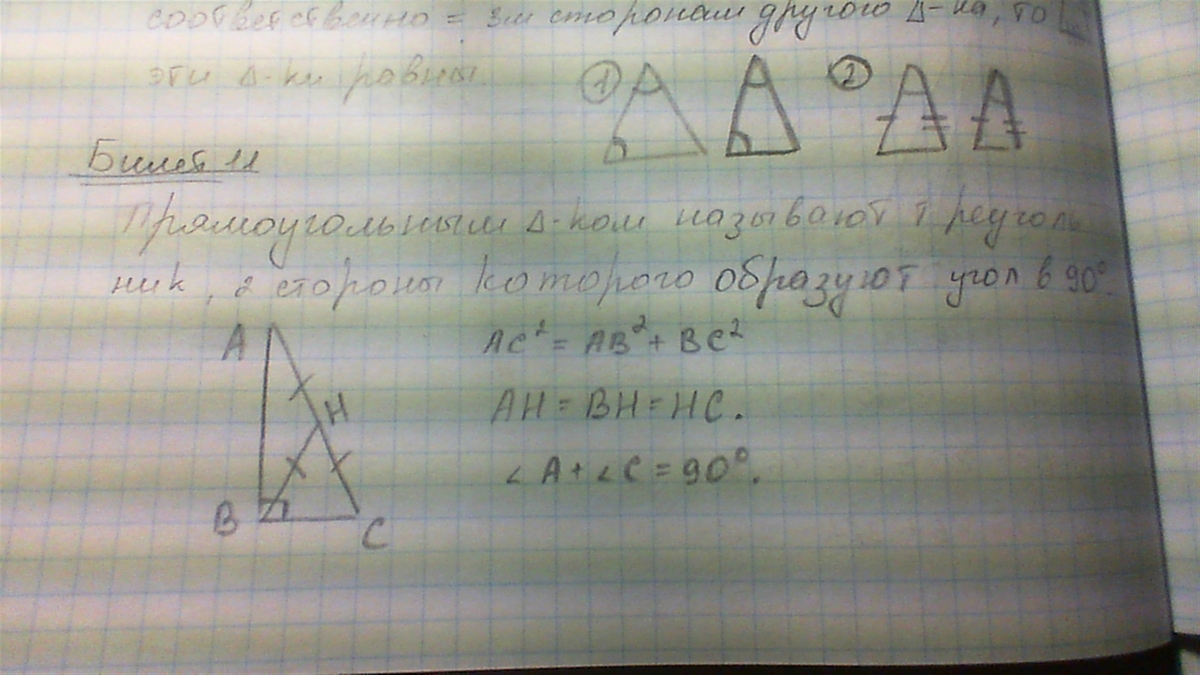 соответственно = 3м сторонам другого Δ-ка, то
эти Δ-ки равны.
1 2
Билет 11
Прямоугольным Δ-ком называют треуголь
ник, 2 стороны которого образуют угол в 90°.
A
H
B
C
AC² = AB² + BC²
AH = BH = HC.
∠A + ∠C = 90°.